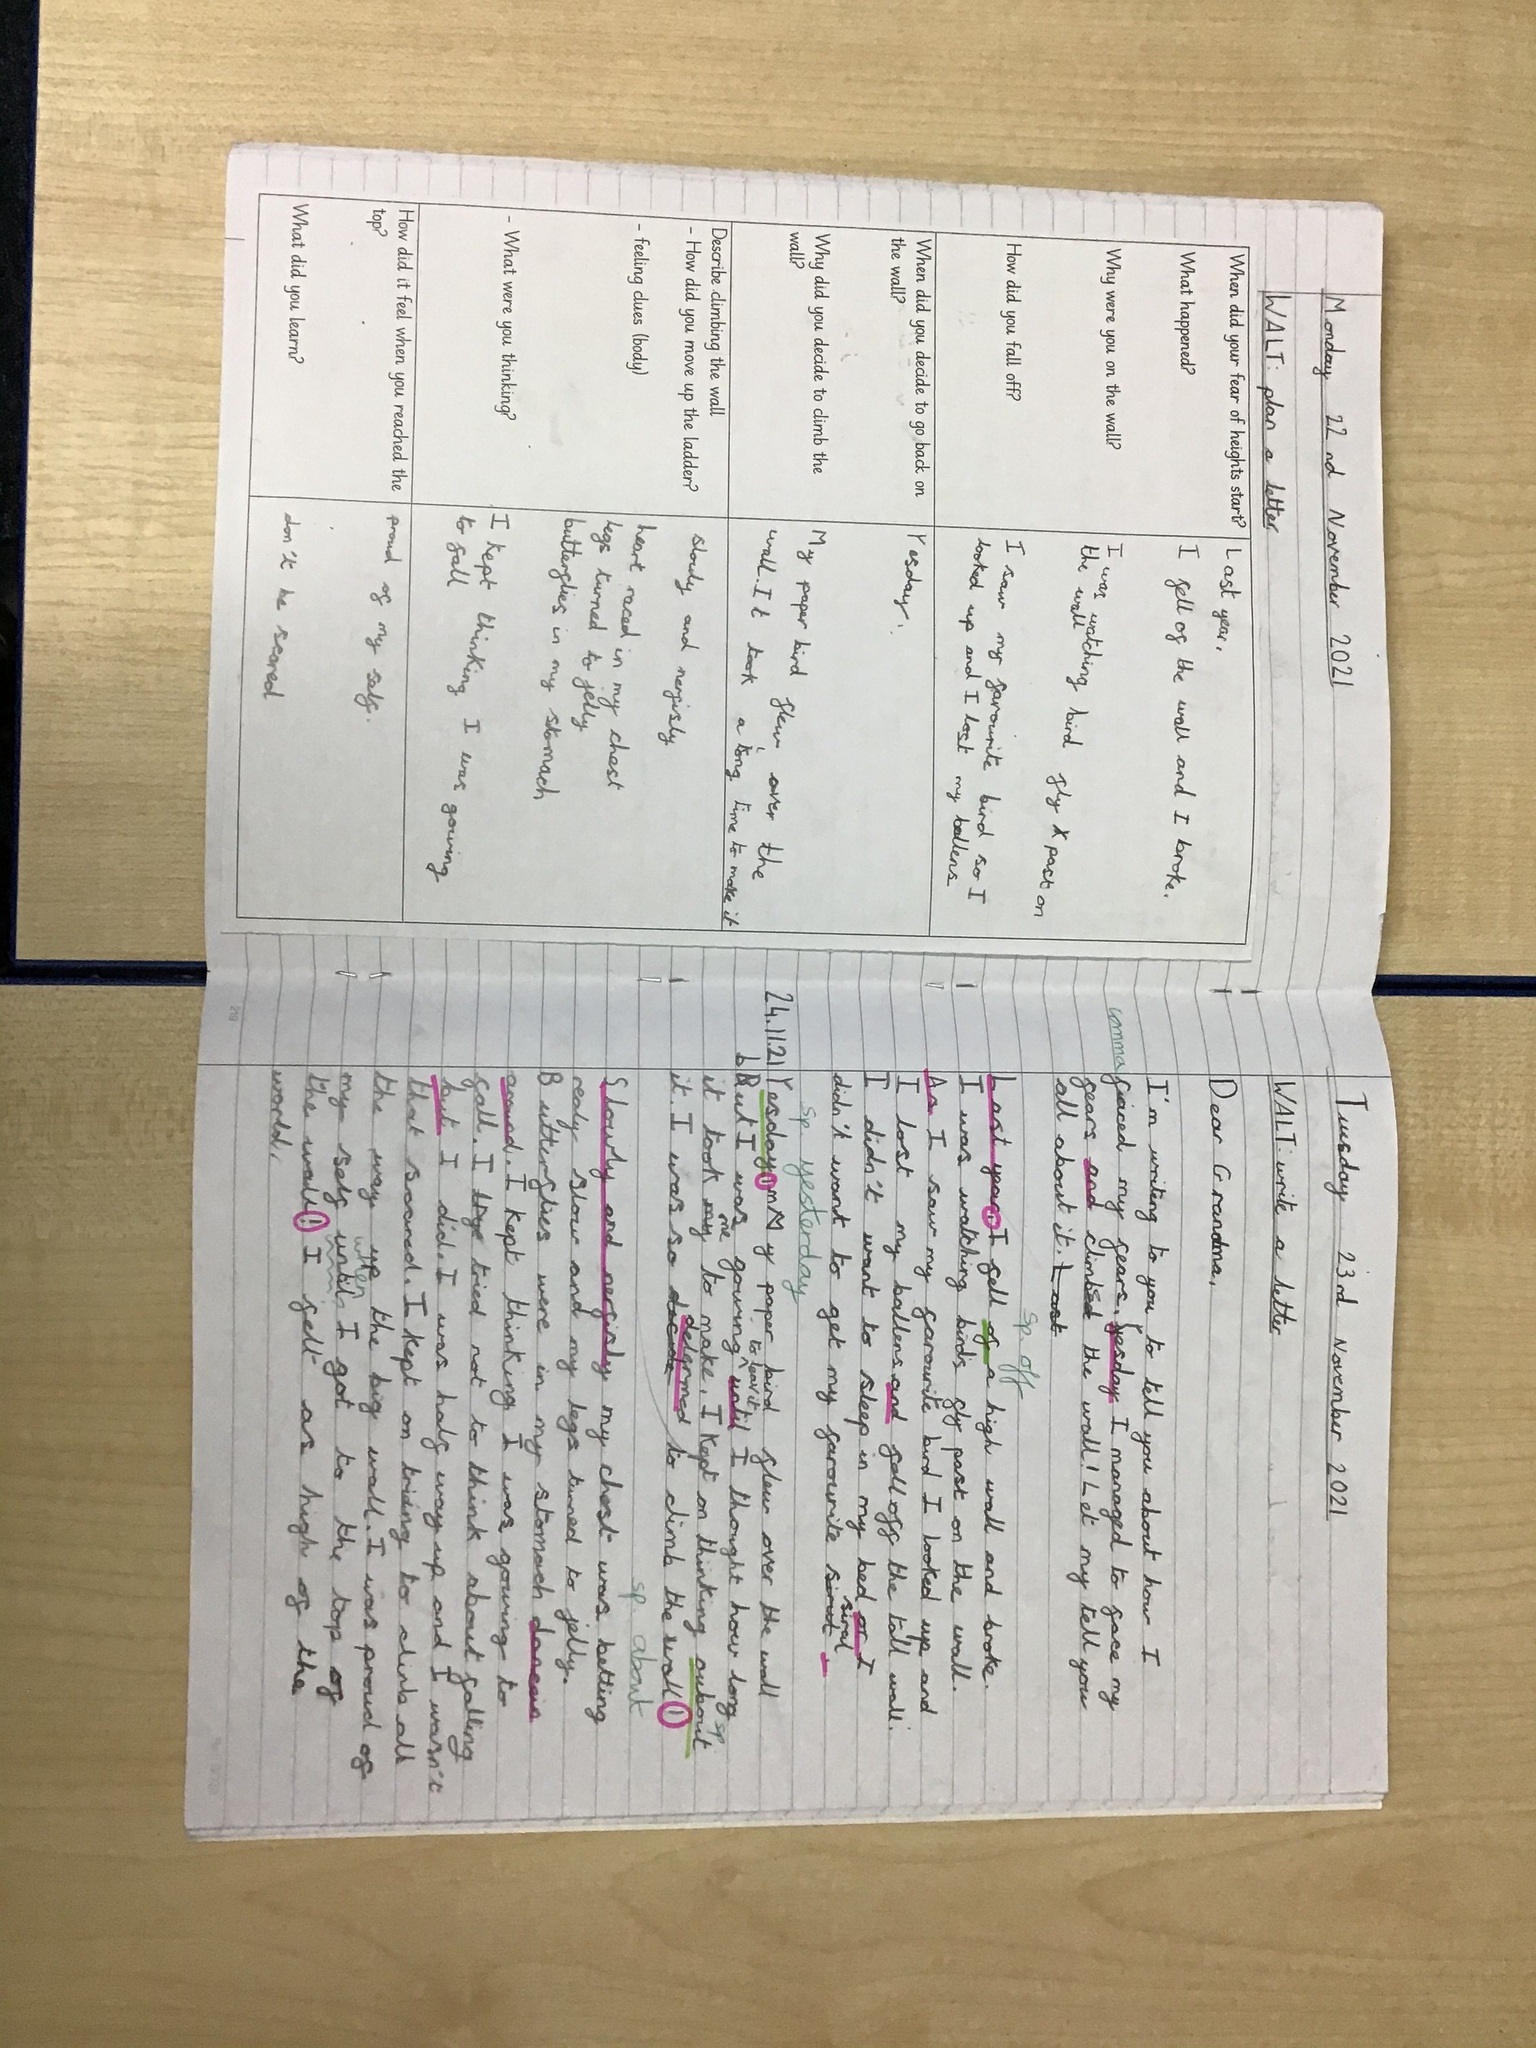 Monday 22nd November 2021
WALT: plan a letter
When did your fear of heights start?
Last year.
What happened?
I fell of the wall and I broke.
Why were you on the wall?
I was watching bird fly x past on
the wall
How did you fall off?
I saw my favourite bird so I
looked up and I lost my ballens
When did you decide to go back on
the wall?
Yesday.
Why did you decide to climb the
wall?
My paper bird flew over the
wall. It took a long time to make it
Describe climbing the wall
- How did you move up the ladder?
slowly and nervisly
- feeling clues (body)
heart raced in my chest
legs turned to jelly
butterflies in my stomach
- What were you thinking?
I kept thinking I was gowing
to fall
How did it feel when you reached the
top?
proud of my self.
What did you learn?
don't be scared
Tuesday 23rd November 2021
WALT: write a letter
Dear Grandma,
I'm writing to you to tell you about how I
comma faiced my fears, yesday I managed to face my
fears and climbed the wall! Let my tell you
all about it. Last
sp off
Last year, I fell of a high wall and broke.
I was watching birds fly past on the wall.
As I saw my favourite bird I looked up and
I lost my ballens and fell off the tall wall.
I didn't want to sleep in my bed or I
didn't want to get my favourite
sp yesterday
24.11.21 Yesday, my paper bird flew over the wall
bBut I was gowing to leav it until I thought how long
it took my me to make. I kept on thinking aubout sp
it. I was so determed to climb the wall!
sp about
Slowly and nervisly my chest was betting
realy slow and my legs turned to jelly.
Butterflies were in my stomach
around. I kept thinking I was gowing to
fall. I try tried not to think about falling
but I did. I was half way up and I wasn't
that scared. I kept on trieing to climb all
the way up the big wall. I was proud of
my self until when I got to the top of
the wall! I felt as high of the
world.